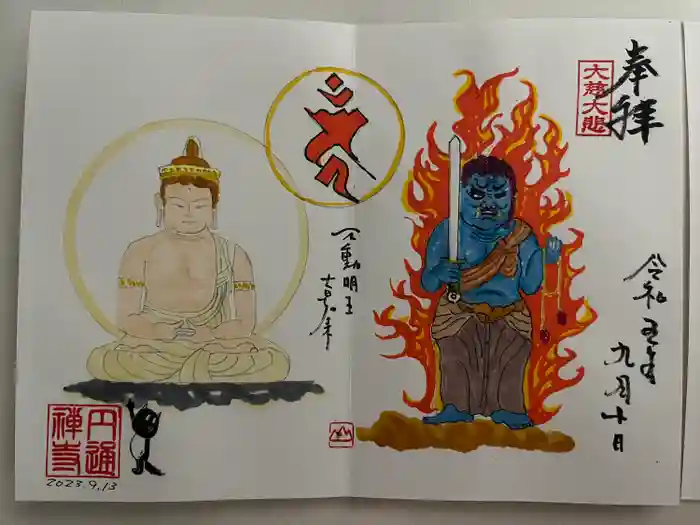 奉拝
大慈大悲
令和五年
九月十日
不動明王
円通
禅寺
2023.9.13